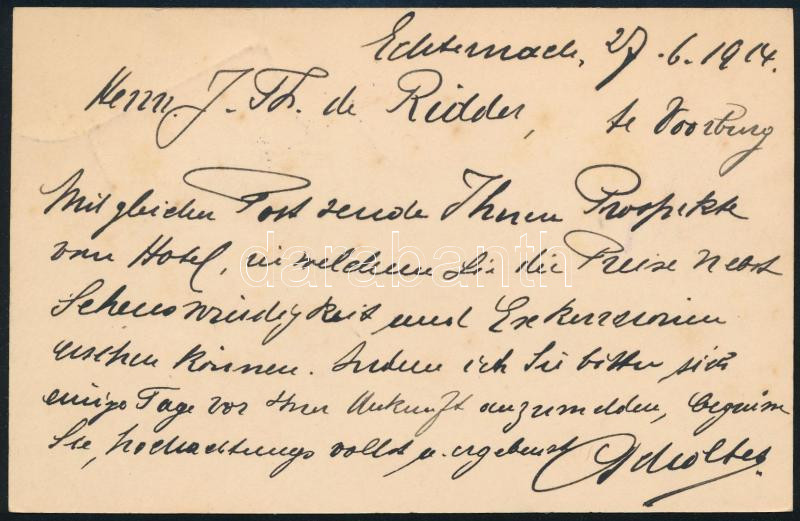 Echternach, 27.6.1914.
Herrn J. Th. de Ridder, te Voorburg
Mit gleicher Post sende Ihnen Prospekte
vom Hotel, in welchem Sie die Preise nebst
Sehenswürdigkeit und Exkursionen
ersehen können. Indem ich Sie bitte sich
einige Tage vor Ihrer Ankunft anzumelden,
Sie, hochachtungsvollst u. ergebenst Scholtes
darabanth